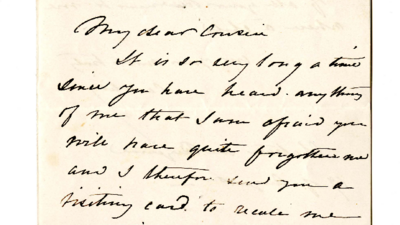 My dear Cousin
It is so very long a time
since you have heard anything
of me that I am afraid you
will have quite forgotten me
and I therefore send you a
visiting card to recale me